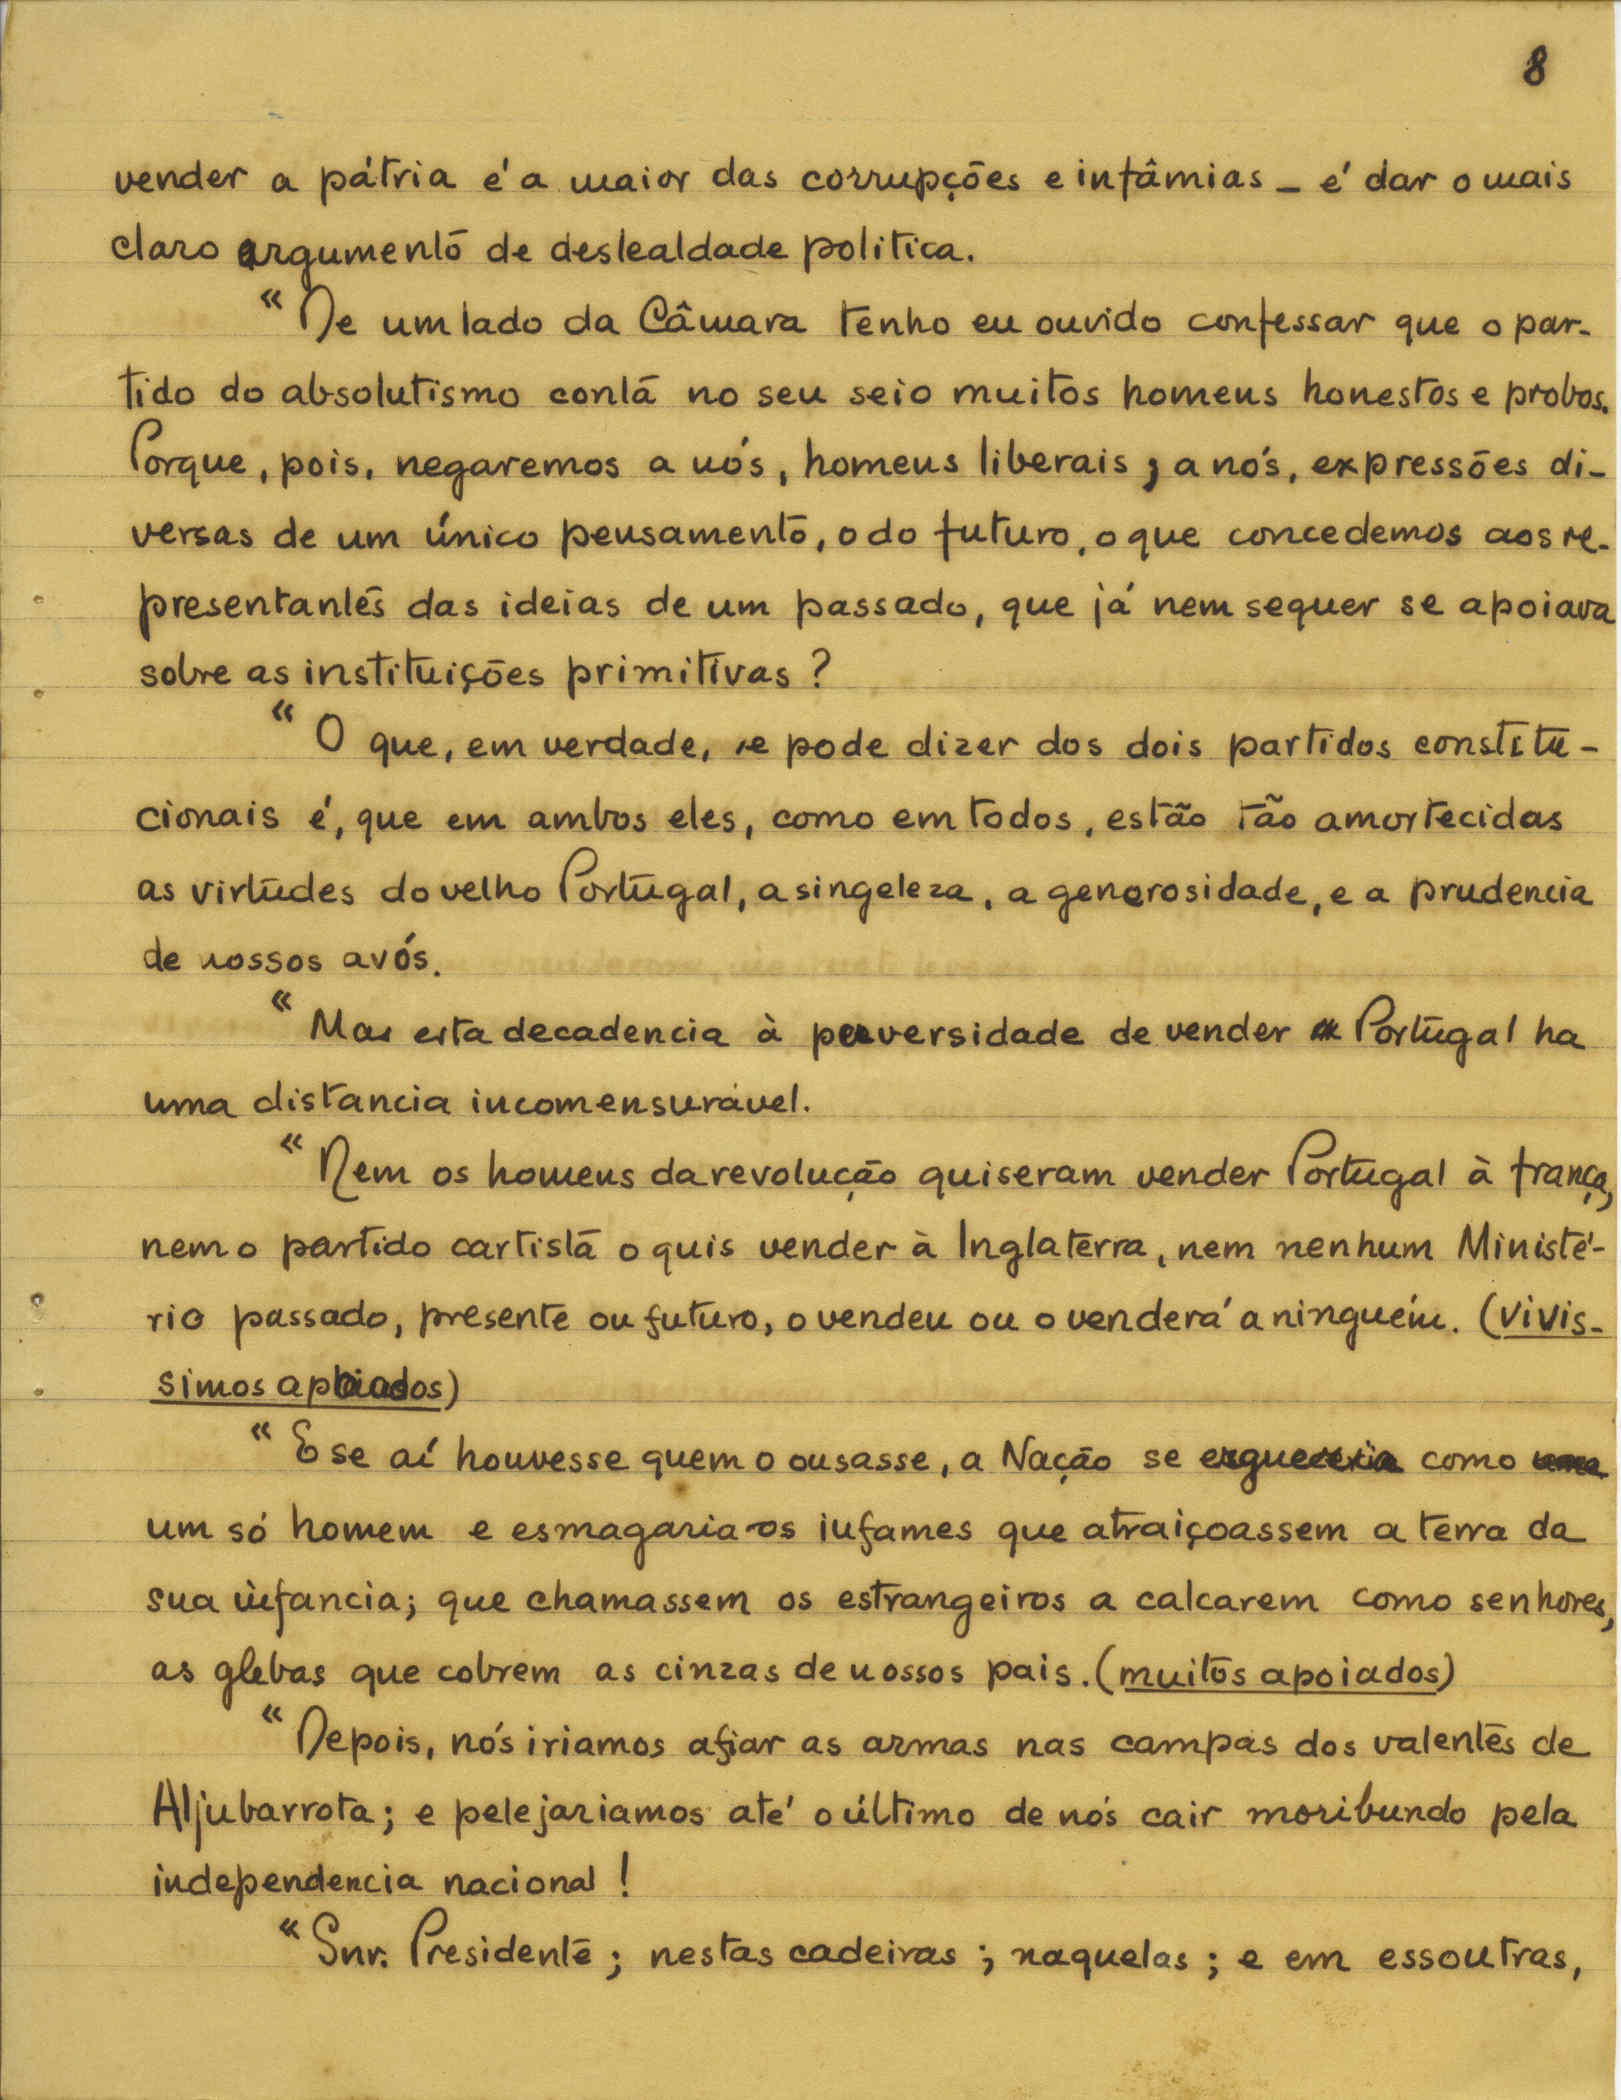 8
vender a pátria é a maior das corrupções e infâmias - é dar o mais
claro argumento de deslealdade politica.
“De um lado da Câmara tenho eu ouvido confessar que o par-
tido do absolutismo conta no seu seio muitos homens honestos e probos.
Porque, pois, negaremos a nós, homens liberais; a nós, expressões di-
versas de um único pensamento, o do futuro, o que concedemos aos re-
presentantes das ideias de um passado, que já nem sequer se apoiava
sobre as instituições primitivas?
“O que, em verdade, se pode dizer dos dois partidos constitu-
cionais é, que em ambos eles, como em todos, estão tão amortecidas
as virtudes do velho Portugal, a singeleza, a generosidade, e a prudencia
de nossos avós.
“Mas esta decadencia à perversidade de vender Portugal ha
uma distancia incomensurável.
“Nem os homens da revolução quiseram vender Portugal à frança,
nem o partido cartista o quis vender à Inglaterra, nem nenhum Ministé-
rio passado, presente ou futuro, o vendeu ou o venderá a ninguém. (vivis-
simos apoiados)
“E se aí houvesse quem o ousasse, a Nação se ergueria como
um só homem e esmagaria os infames que atraiçoassem a terra da
sua infancia; que chamassem os estrangeiros a calcarem como senhores,
as glebas que cobrem as cinzas de nossos pais. (muitos apoiados)
“Depois, nós iriamos afiar as armas nas campas dos valentes de
Aljubarrota; e pelejariamos até o último de nós cair moribundo pela
independencia nacional!
“Snr. Presidente; nestas cadeiras; naquelas; e em essoutras,